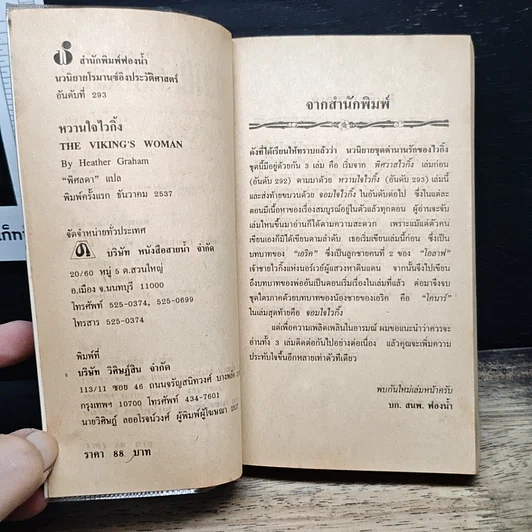 สำนักพิมพ์ฟองน้ำ
นวนิยายโรมานซ์อิงประวัติศาสตร์
อันดับที่ 293
หวานใจไวกิ้ง
THE VIKING'S WOMAN
By Heather Graham
"พิศลดา" แปล
พิมพ์ครั้งแรก ธันวาคม 2537
จัดจำหน่ายทั่วประเทศ
บริษัท หนังสือสายน้ำ จำกัด
20/60 หมู่ 5 ต.สวนใหญ่
อ.เมือง จ.นนทบุรี 11000
โทรศัพท์ 525-0374, 525-0699
โทรสาร 525-0374
พิมพ์ที่
บริษัท วิศิษฏ์สิน จำกัด
113/11 ซอย 46 ถนนจรัญสนิทวงศ์ บางพลัด
กรุงเทพฯ 10700 โทรศัพท์ 434-7601
นายวิศิษฏ์ ลออโรจน์วงศ์ ผู้พิมพ์ผู้โฆษณา 2537
ราคา 88 บาท
จากสำนักพิมพ์
ดังที่ได้เรียนให้ทราบแล้วว่า นวนิยายชุดตำนานรักของไวกิ้ง
ชุดนี้มีอยู่ด้วยกัน 3 เล่ม คือ เริ่มจาก พิศวาสไวกิ้ง เล่มก่อน
(อันดับ 292) ตามมาด้วย หวานใจไวกิ้ง (อันดับ 293) เล่มนี้
และส่งท้ายขบวนด้วย จอมใจไวกิ้ง ในอันดับต่อไป ซึ่งในแต่ละ
ตอนมีเนื้อหาของเรื่องสมบูรณ์อยู่ในตัวแล้วทุกตอน ผู้อ่านจะจับ
เล่มไหนขึ้นมาอ่านก็ได้ตามความสะดวก เพราะแม้แต่ตัวคน
เขียนเองก็มิได้เขียนตามลำดับ เธอเริ่มเขียนเล่มนี้ก่อน ซึ่งเป็น
บทบาทของ "เอริค" ซึ่งเป็นลูกชายคนที่ 2 ของ "โอลาฟ"
เจ้าชายไวกิ้งแห่งนอร์เวย์ผู้แสวงหาดินแดน จากนั้นจึงไปเขียน
ถึงบทบาทของพ่ออันเป็นตอนเริ่มเรื่องในเล่มที่แล้ว ต่อมาจึงจบ
ชุดไตรภาคด้วยบทบาทของน้องชายของเอริค คือ "โคนาร์"
ในเล่มสุดท้ายคือ จอมใจไวกิ้ง
แต่เพื่อความเพลิดเพลินในอารมณ์ ผมขอแนะนำว่าควรจะ
อ่านทั้ง 3 เล่มติดต่อกันไปอย่างต่อเนื่อง แล้วคุณจะเพิ่มความ
ประทับใจขึ้นอีกหลายเท่าตัวทีเดียว
พบกันใหม่เล่มหน้าครับ
บก. สนพ. ฟองน้ำ